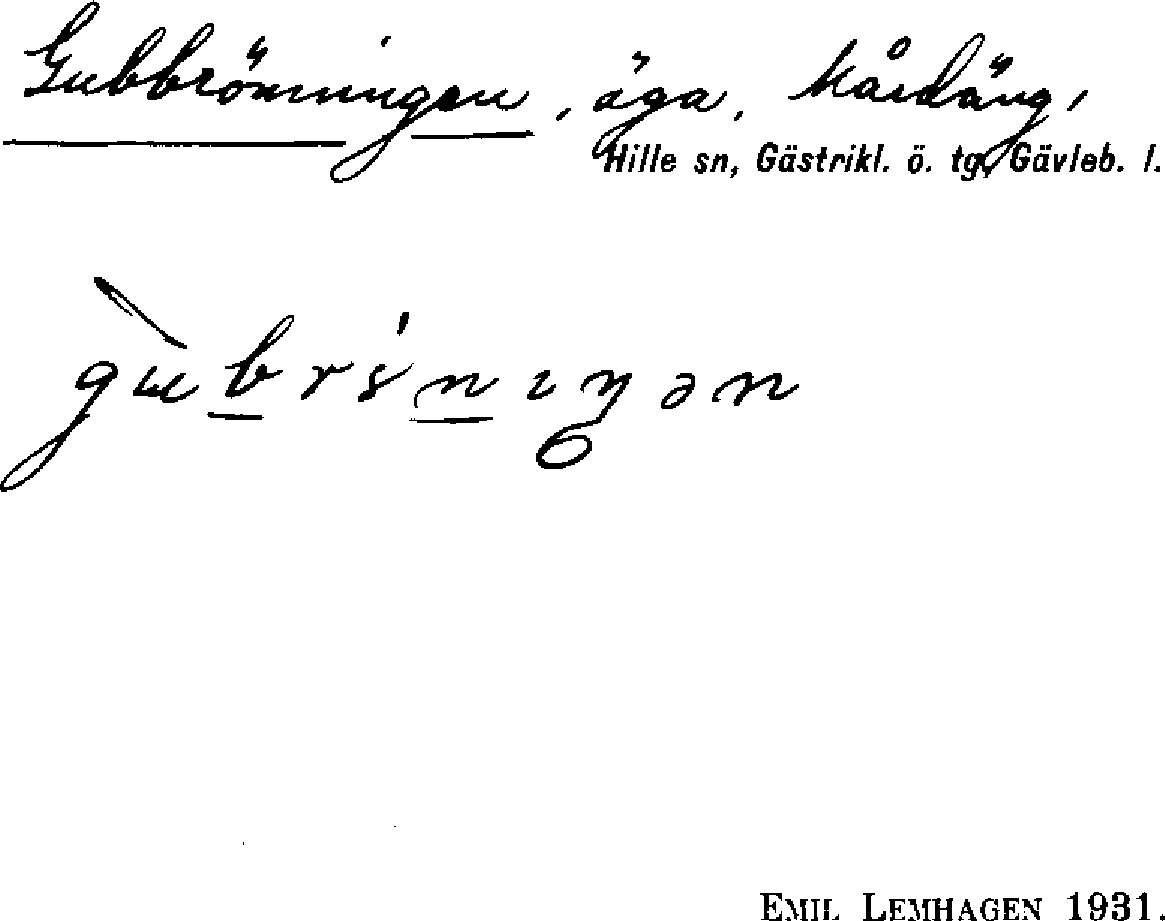 Gubbrönningen, äga, Mårdäng,
Hille sn, Gästrikl. ö. tg, Gävleb. l.
gùb̲rs̍n̲ɩŋən
EMIL LEMHAGEN 1931.